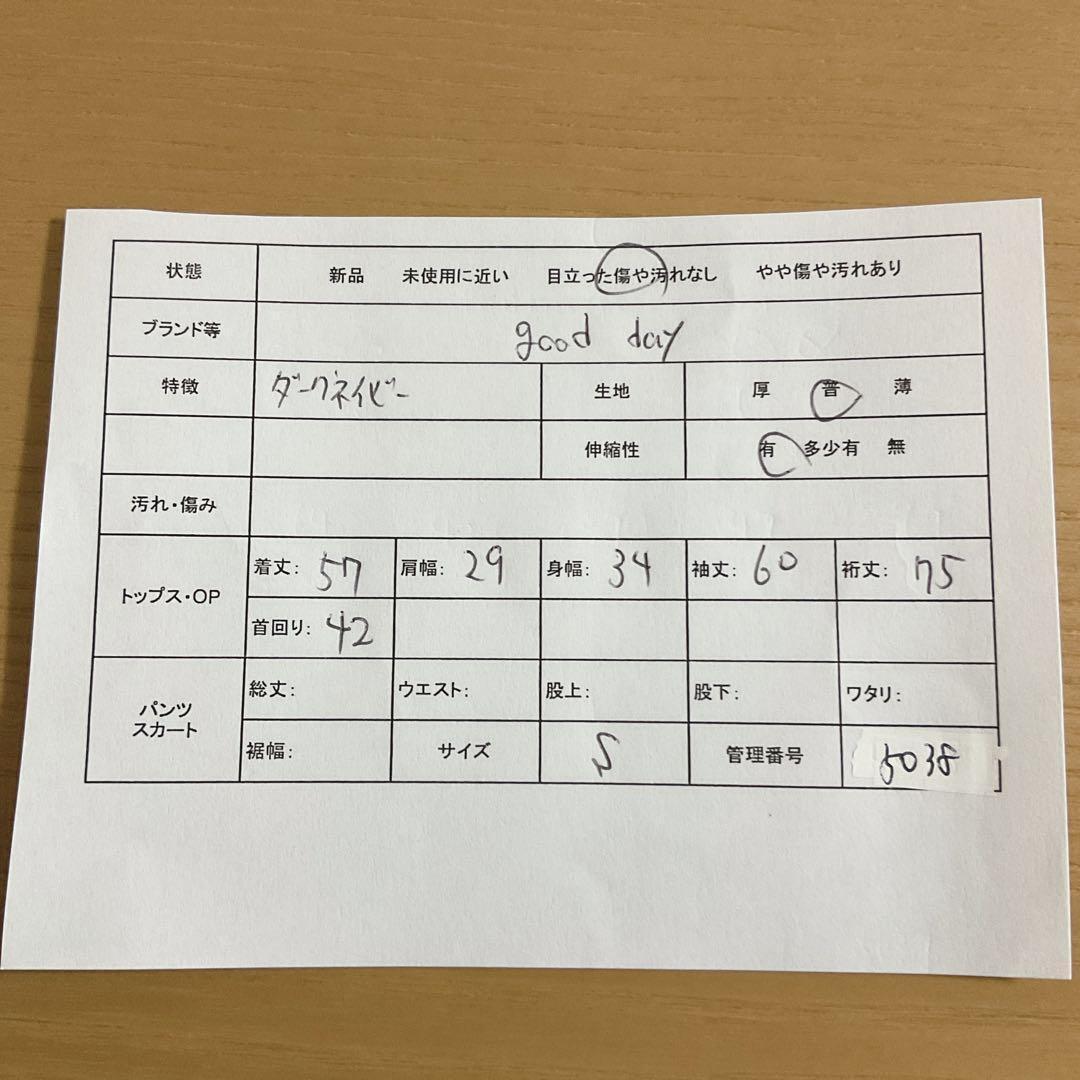 状態 新品 未使用に近い 目立った傷や汚れなし やや傷や汚れあり
ブランド等 good day
特徴 ダークネイビー 生地 厚 普 薄
伸縮性 有 多少有 無
汚れ・傷み
トップス・OP
着丈: 57 肩幅: 29 身幅: 34 袖丈: 60 裄丈: 75
首回り: 42
パンツ
スカート
総丈: ウエスト: 股上: 股下: ワタリ:
裾幅: サイズ S 管理番号 5038